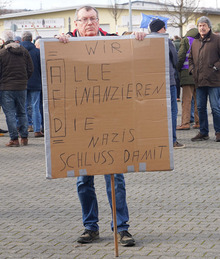 WIR
ALLE
FINANZIEREN
DIE
NAZIS
SCHLUSS DAMIT